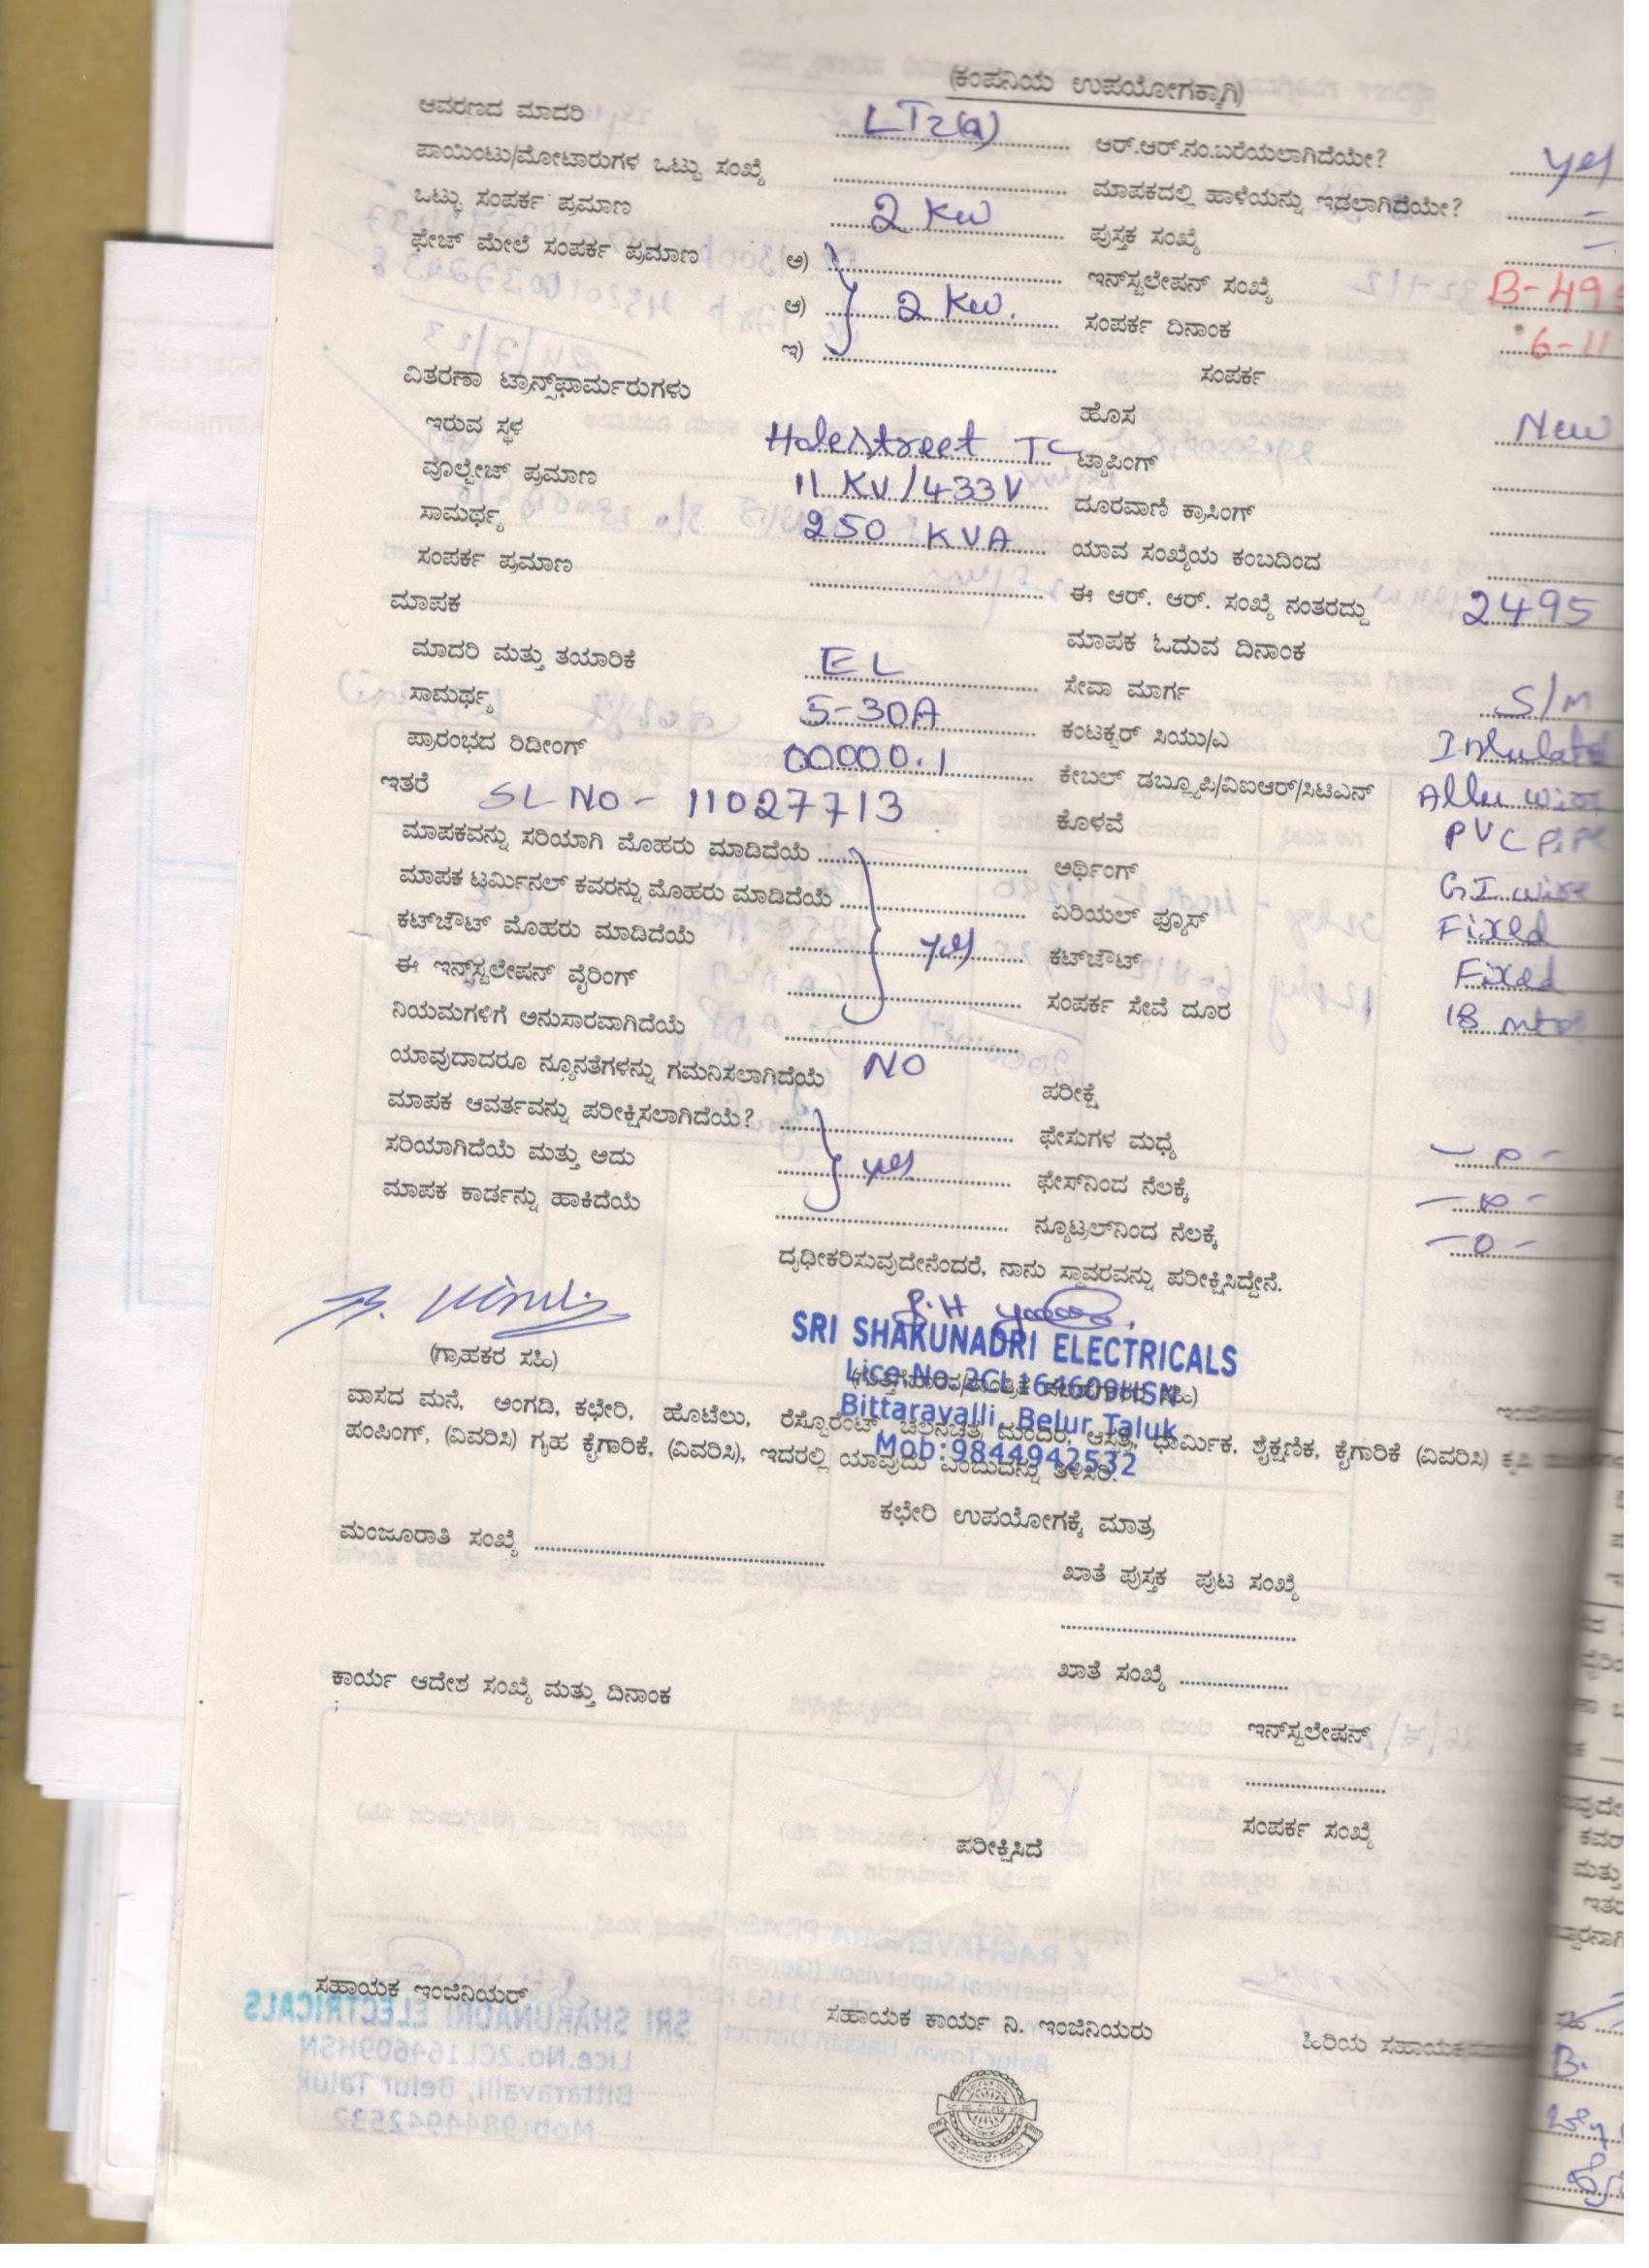 (ಕಂಪನಿಯ ಉಪಯೋಗಕ್ಕಾಗಿ)
ಆವರಣದ ಮಾದರಿ LT2(a) ಆರ್.ಆರ್.ನಂ.ಬರೆಯಲಾಗಿದೆಯೇ? yes
ಪಾಯಿಂಟು/ಮೋಟಾರುಗಳ ಒಟ್ಟು ಸಂಖ್ಯೆ ಮಾಪಕದಲ್ಲಿ ಹಾಳೆಯನ್ನು ಇಡಲಾಗಿದೆಯೇ? -
ಒಟ್ಟು ಸಂಪರ್ಕ ಪ್ರಮಾಣ 2 KW ಪುಸ್ತಕ ಸಂಖ್ಯೆ -
ಫೇಜ್ ಮೇಲೆ ಸಂಪರ್ಕ ಪ್ರಮಾಣ ಅ) ಇನ್‌ಸ್ಟಲೇಷನ್ ಸಂಖ್ಯೆ B-49
ಆ) 2 KW. ಸಂಪರ್ಕ ದಿನಾಂಕ 6-11
ಇ) ಸಂಪರ್ಕ
ವಿತರಣಾ ಟ್ರಾನ್ಸ್‌ಫಾರ್ಮರುಗಳು ಹೊಸ New
ಇರುವ ಸ್ಥಳ Holestreet TC ಟ್ಯಾಪಿಂಗ್
ವೊಲ್ಟೇಜ್ ಪ್ರಮಾಣ 11 KV/433V ದೂರವಾಣಿ ಕ್ರಾಸಿಂಗ್
ಸಾಮರ್ಥ್ಯ 250 KVA ಯಾವ ಸಂಖ್ಯೆಯ ಕಂಬದಿಂದ
ಸಂಪರ್ಕ ಪ್ರಮಾಣ ಈ ಆರ್. ಆರ್. ಸಂಖ್ಯೆ ನಂತರದ್ದು 2495
ಮಾಪಕ ಮಾಪಕ ಓದುವ ದಿನಾಂಕ
ಮಾದರಿ ಮತ್ತು ತಯಾರಿಕೆ EL ಸೇವಾ ಮಾರ್ಗ S/M
ಸಾಮರ್ಥ್ಯ 5-30A ಕಂಟಕ್ಟರ್ ಸಿಯು/ಎ
ಪ್ರಾರಂಭದ ರಿಡೀಂಗ್ 00000.1 ಕೇಬಲ್ ಡಬ್ಲ್ಯೂಪಿ/ವಿಐಆರ್/ಸಿಟಿಎನ್ Allu wire
ಇತರೆ SL NO - 11027713 ಕೊಳವೆ PVC Pipe
ಮಾಪಕವನ್ನು ಸರಿಯಾಗಿ ಮೊಹರು ಮಾಡಿದೆಯೆ ಅರ್ಥಿಂಗ್ GI wire
ಮಾಪಕ ಟರ್ಮಿನಲ್ ಕವರನ್ನು ಮೊಹರು ಮಾಡಿದೆಯೆ ಏರಿಯಲ್ ಫ್ಯೂಸ್ Fixed
ಕಟ್‌ಔಟ್ ಮೊಹರು ಮಾಡಿದೆಯೆ yes ಕಟ್‌ಔಟ್ Fixed
ಈ ಇನ್ಸ್‌ಸ್ಟಲೇಷನ್ ವೈರಿಂಗ್ ಸಂಪರ್ಕ ಸೇವೆ ದೂರ 18
ನಿಯಮಗಳಿಗೆ ಅನುಸಾರವಾಗಿದೆಯೆ
ಯಾವುದಾದರೂ ನ್ಯೂನತೆಗಳನ್ನು ಗಮನಿಸಲಾಗಿದೆಯೆ NO ಪರೀಕ್ಷೆ
ಮಾಪಕ ಆವರ್ತವನ್ನು ಪರೀಕ್ಷಿಸಲಾಗಿದೆಯೆ? ಫೇಸುಗಳ ಮಧ್ಯೆ
ಸರಿಯಾಗಿದೆಯೆ ಮತ್ತು ಅದು yes ಫೇಸ್‌ನಿಂದ ನೆಲಕ್ಕೆ
ಮಾಪಕ ಕಾರ್ಡನ್ನು ಹಾಕಿದೆಯೆ ನ್ಯೂಟ್ರಲ್‌ನಿಂದ ನೆಲಕ್ಕೆ -0-
ದೃಢೀಕರಿಸುವುದೇನೆಂದರೆ, ನಾನು ಸ್ಥಾವರವನ್ನು ಪರೀಕ್ಷಿಸಿದ್ದೇನೆ.
SRI SHAKUNADRI ELECTRICALS
(ಗ್ರಾಹಕರ ಸಹಿ)
Lice.No.2CL164609HSN
Bittaravalli, Belur Taluk
Mob:9844942532
ವಾಸದ ಮನೆ, ಅಂಗಡಿ, ಕಛೇರಿ, ಹೊಟೆಲು, ರೆಸ್ಟೊರೆಂಟ್, ಚಲನಚಿತ್ರ ಮಂದಿರ, ಆಸ್ಪತ್ರೆ, ಧಾರ್ಮಿಕ, ಶೈಕ್ಷಣಿಕ, ಕೈಗಾರಿಕೆ (ವಿವರಿಸಿ) ಕೃಷಿ
ಪಂಪಿಂಗ್, (ವಿವರಿಸಿ) ಗೃಹ ಕೈಗಾರಿಕೆ, (ವಿವರಿಸಿ), ಇದರಲ್ಲಿ ಯಾವುದು ಎಂಬುದನ್ನು ತಿಳಿಸಿರಿ.
ಕಛೇರಿ ಉಪಯೋಗಕ್ಕೆ ಮಾತ್ರ
ಮಂಜೂರಾತಿ ಸಂಖ್ಯೆ
ಖಾತೆ ಪುಸ್ತಕ ಪುಟ ಸಂಖ್ಯೆ
ಖಾತೆ ಸಂಖ್ಯೆ
ಕಾರ್ಯ ಆದೇಶ ಸಂಖ್ಯೆ ಮತ್ತು ದಿನಾಂಕ
ಇನ್‌ಸ್ಟಲೇಷನ್
ಸಂಪರ್ಕ ಸಂಖ್ಯೆ
ಪರೀಕ್ಷಿಸಿದೆ
ಸಹಾಯಕ ಇಂಜಿನಿಯರ್
ಸಹಾಯಕ ಕಾರ್ಯ ನಿ. ಇಂಜಿನಿಯರು
ಹಿರಿಯ ಸಹಾಯಕ